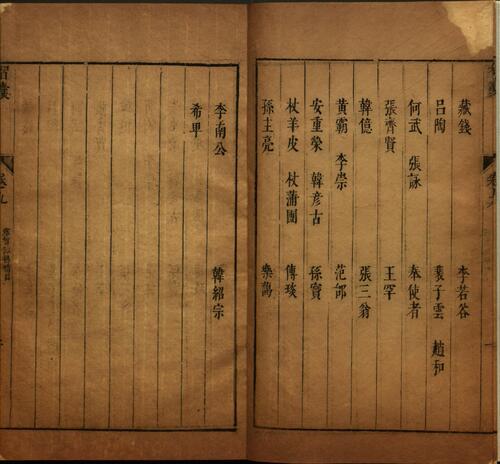 藏錢 李若谷
吕陶 裴子雲 趙和
何武 張詠 奉使者
張齊賢 王罕
韓億 張三翁
黃霸 李崇 范郃
安重榮 韓彦古 孫寶
杖羊皮 杖蒲團 傅琰
孫主亮 樂藹
李南公 韓紹宗
希卑
智囊
卷九